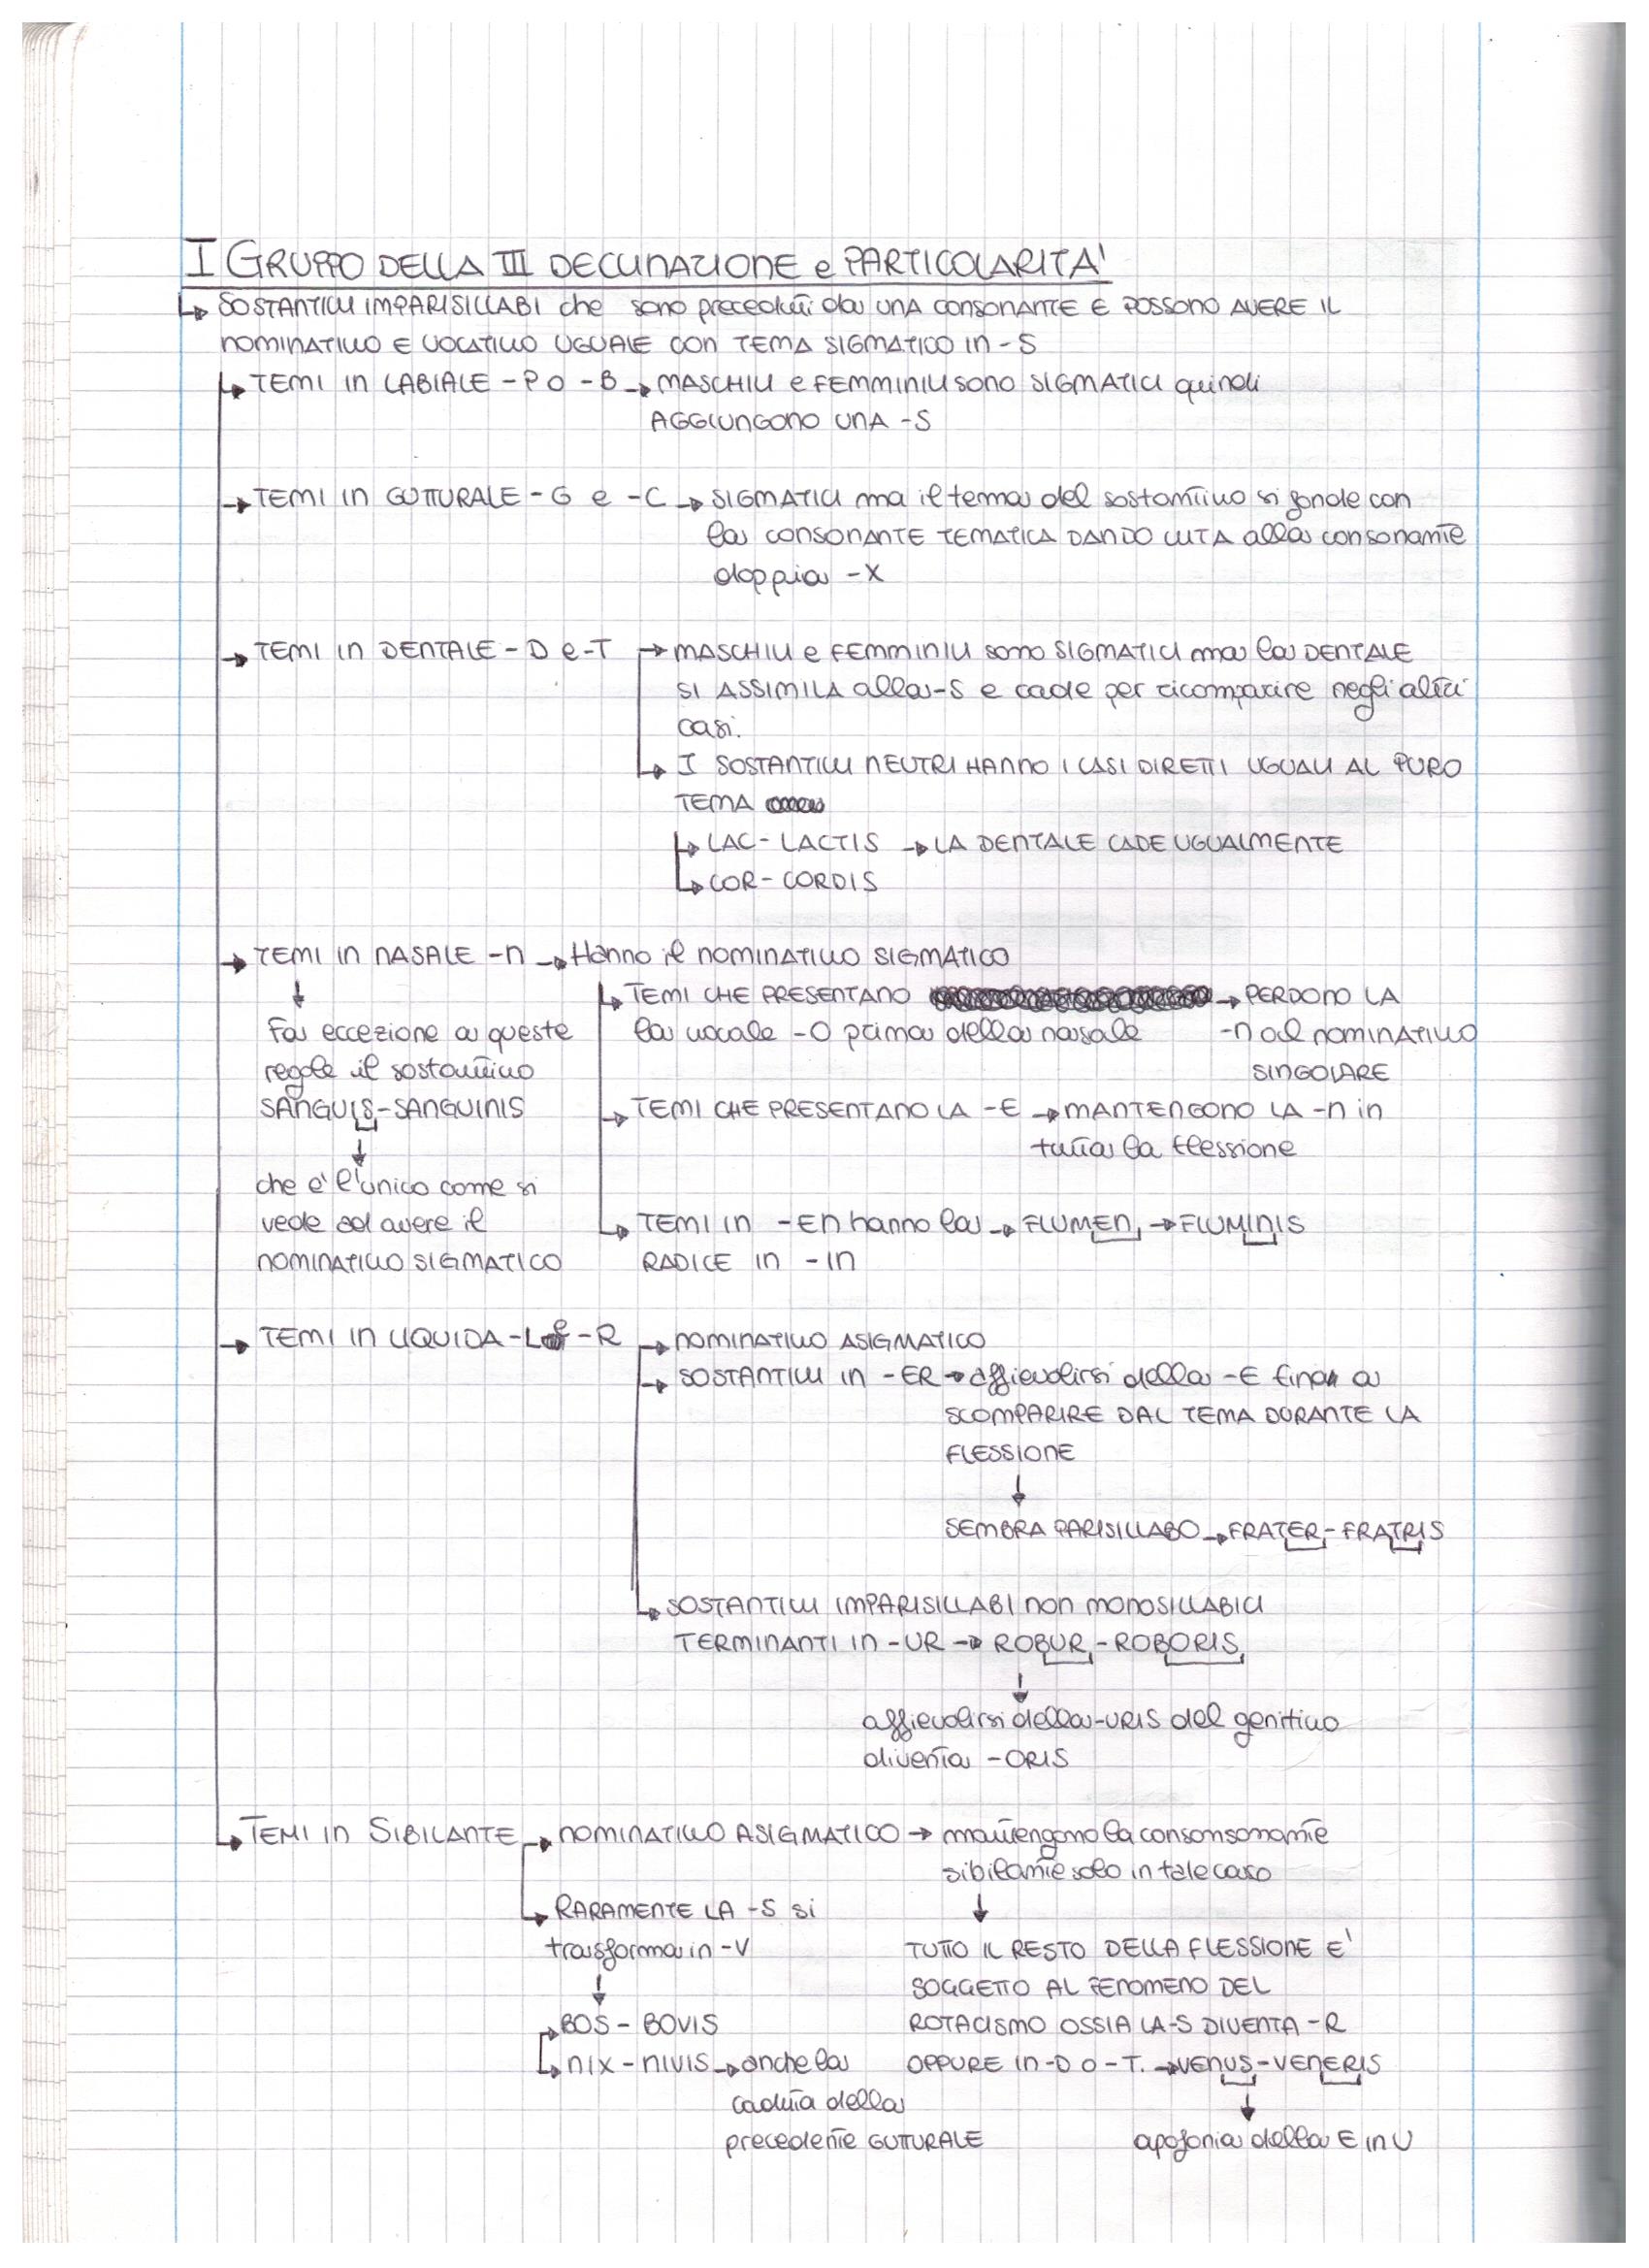 I GRUPPO DELLA III DECLINAZIONE e PARTICOLARITA'
↳ SOSTANTIVI IMPARISILLABI che sono preceduti da UNA CONSONANTE E POSSONO AVERE IL
NOMINATIVO E VOCATIVO UGUALE CON TEMA SIGMATICO IN -S
↳ TEMI IN LABIALE -P O -B → MASCHILI e FEMMINILI sono SIGMATICI quindi
AGGIUNGONO UNA -S
→ TEMI IN GUTTURALE -G e -C → SIGMATICI ma il tema del sostantivo si fonde con
la CONSONANTE TEMATICA DANDO VITA alla consonante
doppia -X
→ TEMI IN DENTALE -D e -T → MASCHILI e FEMMINILI sono SIGMATICI ma la DENTALE
SI ASSIMILA alla -S e cade per ricomparire negli altri
casi.
↳ I SOSTANTIVI NEUTRI HANNO I CASI DIRETTI UGUALI AL PURO
TEMA
↳ LAC - LACTIS → LA DENTALE CADE UGUALMENTE
↳ COR - CORDIS
→ TEMI IN NASALE -N → Hanno il NOMINATIVO SIGMATICO
↳ TEMI CHE PRESENTANO → PERDONO LA
la vocale -O prima della nasale -N al nominativo
SINGOLARE
↓
Fa eccezione a queste
regole il sostantivo
SANGUIS - SANGUINIS
↓
che e' l'unico come si
vede ad avere il
NOMINATIVO SIGMATICO
↳ TEMI CHE PRESENTANO LA -E → MANTENGONO LA -N in
tutta la flessione
↳ TEMI IN -EN hanno la → FLUMEN → FLUMINIS
RADICE IN -IN
→ TEMI IN LIQUIDA -L e -R → NOMINATIVO ASIGMATICO
→ SOSTANTIVI IN -ER → affievolirsi della -E fino a
SCOMPARIRE DAL TEMA DURANTE LA
FLESSIONE
↓
SEMBRA PARISILLABO → FRATER - FRATRIS
↳ SOSTANTIVI IMPARISILLABI NON MONOSILLABICI
TERMINANTI IN -UR → ROBUR - ROBORIS
↓
affievolirsi della -URIS del genitivo
diventa -ORIS
↳ TEMI IN SIBILANTE → NOMINATIVO ASIGMATICO → mantengono la consonsonante
sibilante solo in tale caso
↓
TUTTO IL RESTO DELLA FLESSIONE E'
SOGGETTO AL FENOMENO DEL
ROTACISMO OSSIA LA -S DIVENTA -R
OPPURE IN -D O -T. → VENUS - VENERIS
↓
apofonia della E IN U
↳ RARAMENTE LA -S si
trasforma in -V
↓
→ BOS - BOVIS
↳ NIX - NIVIS → anche la
caduta della
precedente GUTTURALE